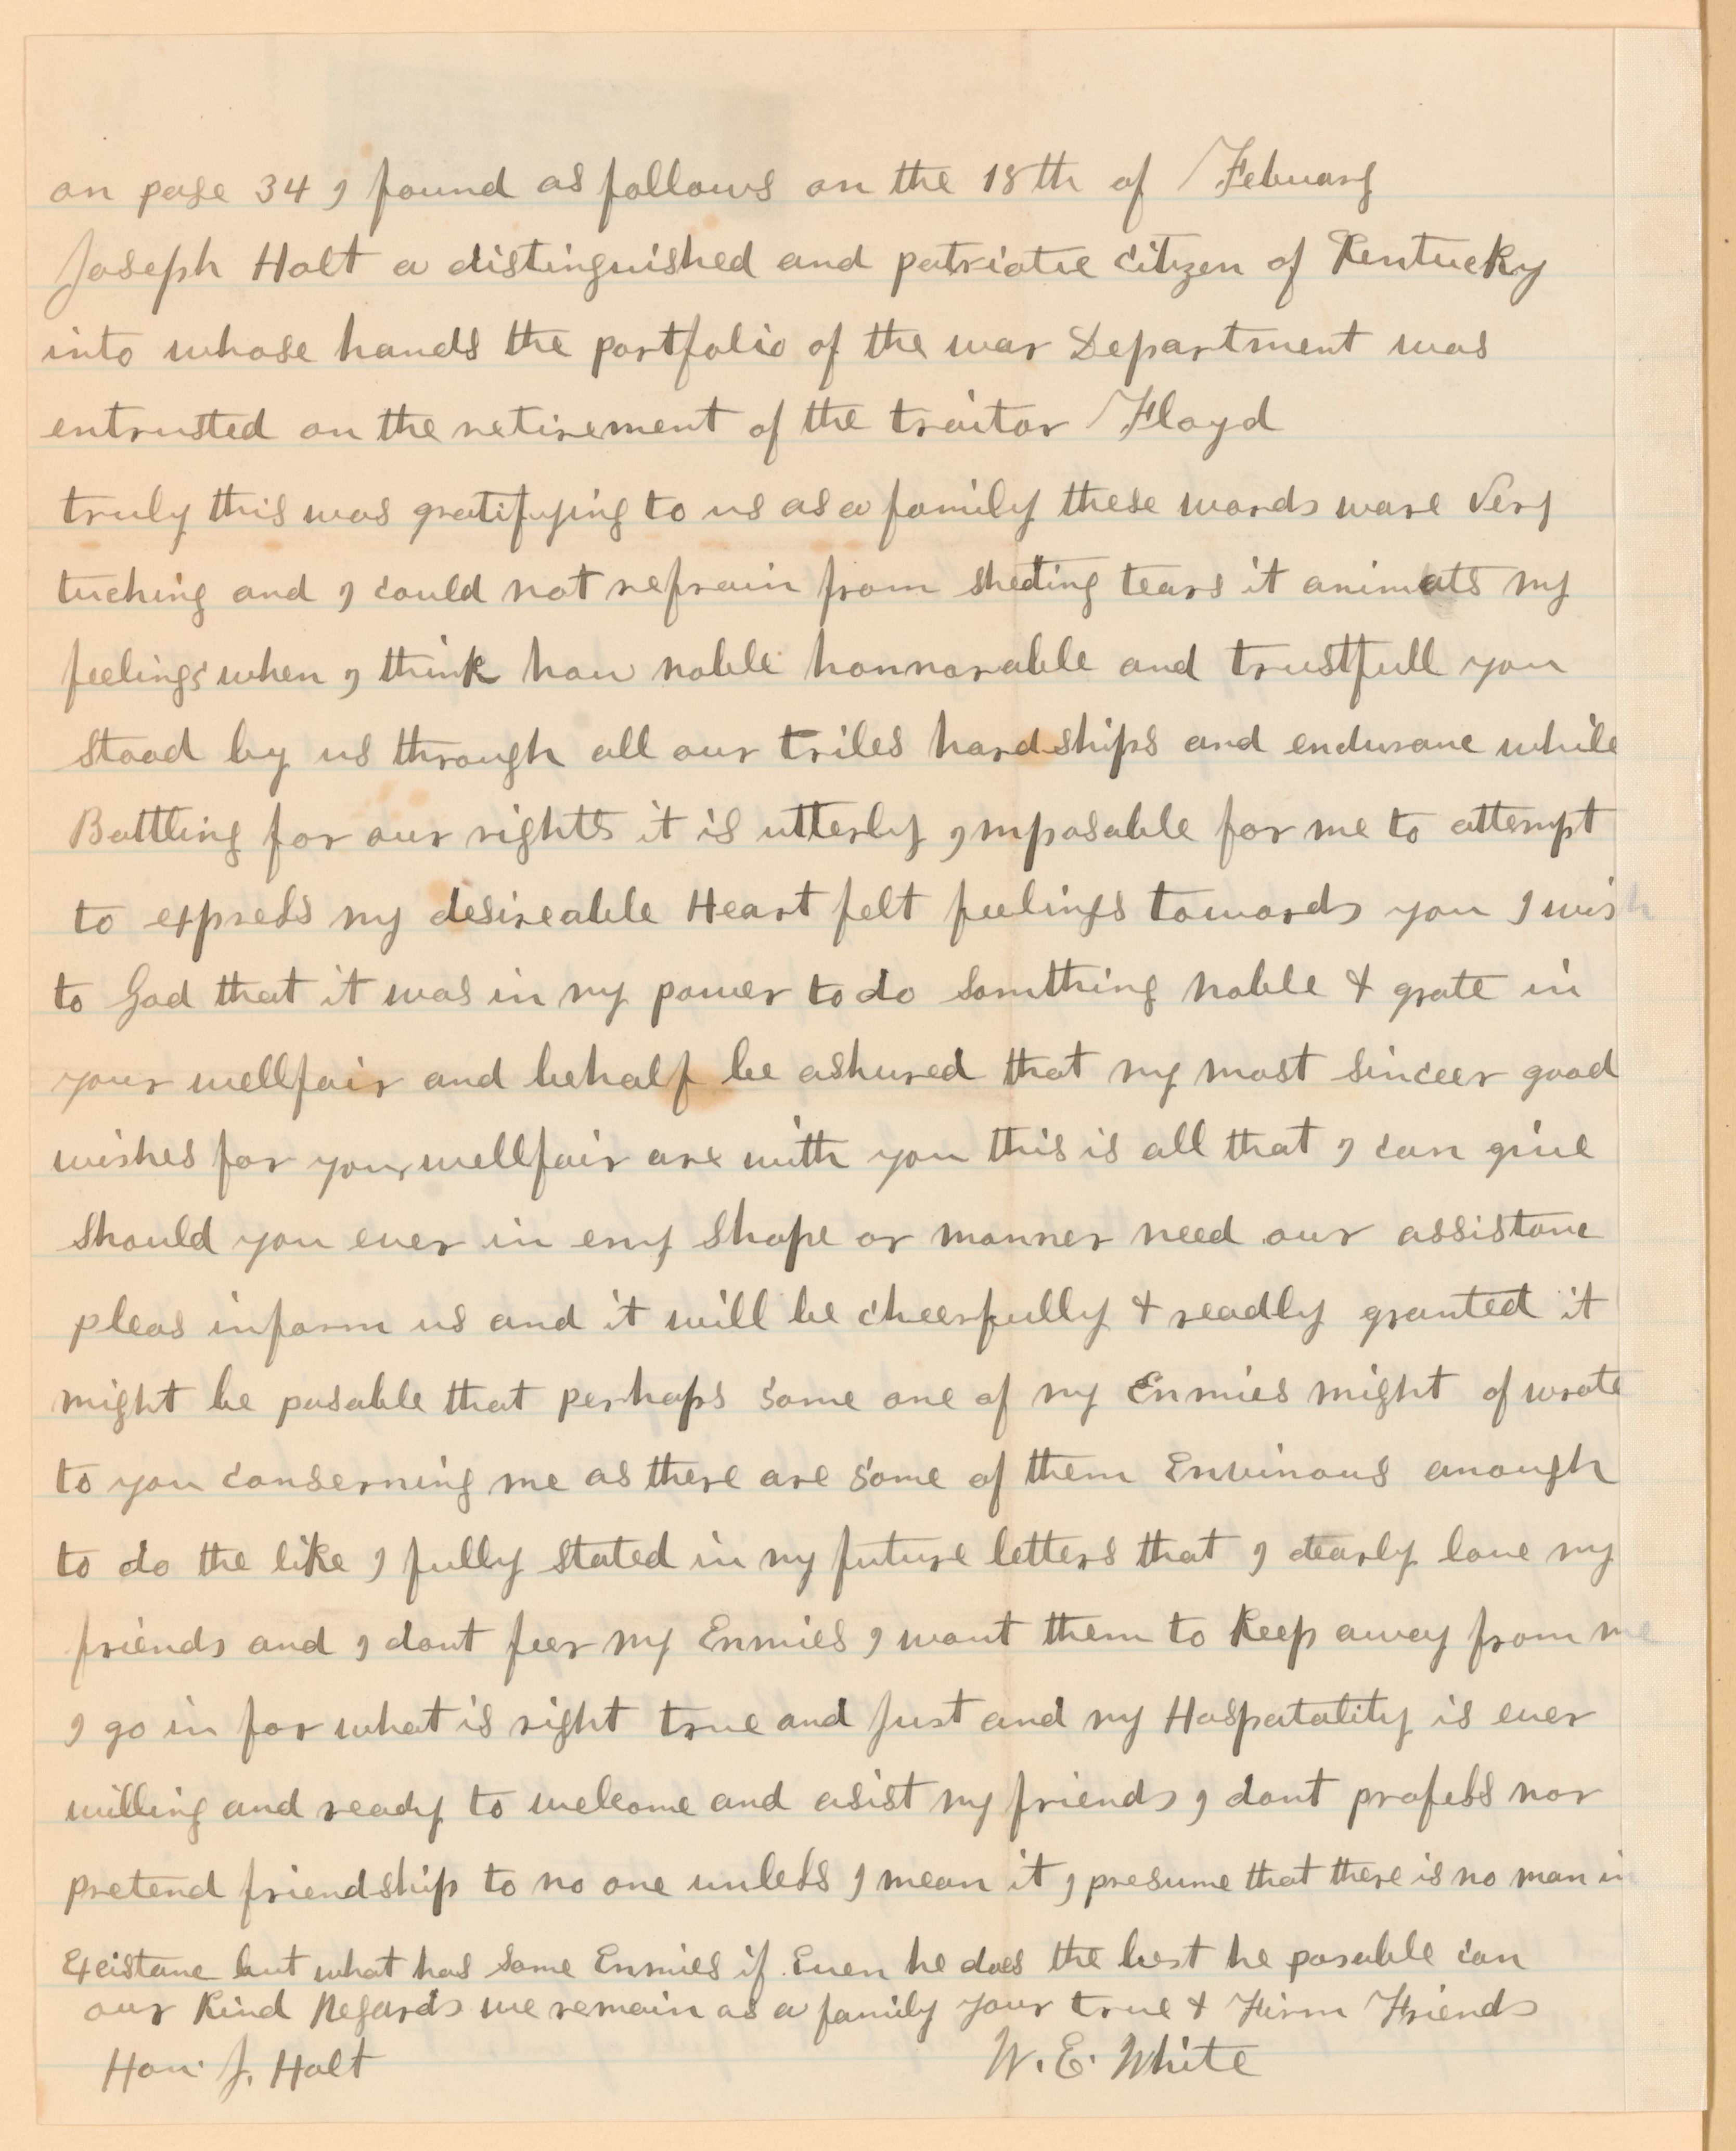 on page 34 I found as follows on the 18th of Febuary
Joseph Holt a distinguished and patriotic citizen of Kentucky
into whose hands the portfolio of the war Department was
entrusted on the retirement of the traitor Floyd
truly this was gratifying to us as a family these words ware Very
tuching and I could not refrain from sheding tears it animats my
feelings when I think how noble honnorable and trustfull you
stood by us through all our triles hardships and endurance while
Battling for our rights it is utterly Imposable for me to attempt
to express my desireable Heart felt feelings towards you I wish
to God that it was in my power to do somthing noble & grate in
your wellfair and behalf be ashured that my most sinceer good
wishes for your wellfair are with you this is all that I can give
should you ever in eny shape or manner need our assistance
pleas inform us and it will be cheerfully & readly granted it
might be posable that perhaps some one of my Enmies might of wrote
to you conserning me as there are some of them Envinous anough
to do the like I fully stated in my future letters that I dearly love my
friends and I dont feer my Enmies I want them to Keep away from me
I go in for what is right true and Just and my Hospatality is ever
willing and ready to welcome and asist my friends I dont profess nor
pretend friendship to no one unless I mean it I presume that there is no man in
Existance but what has some Enmies if Even he does the best he posable can
our Kind Regards we remain as a family your true & Firm Friends
Hon. J. Holt W. E. White